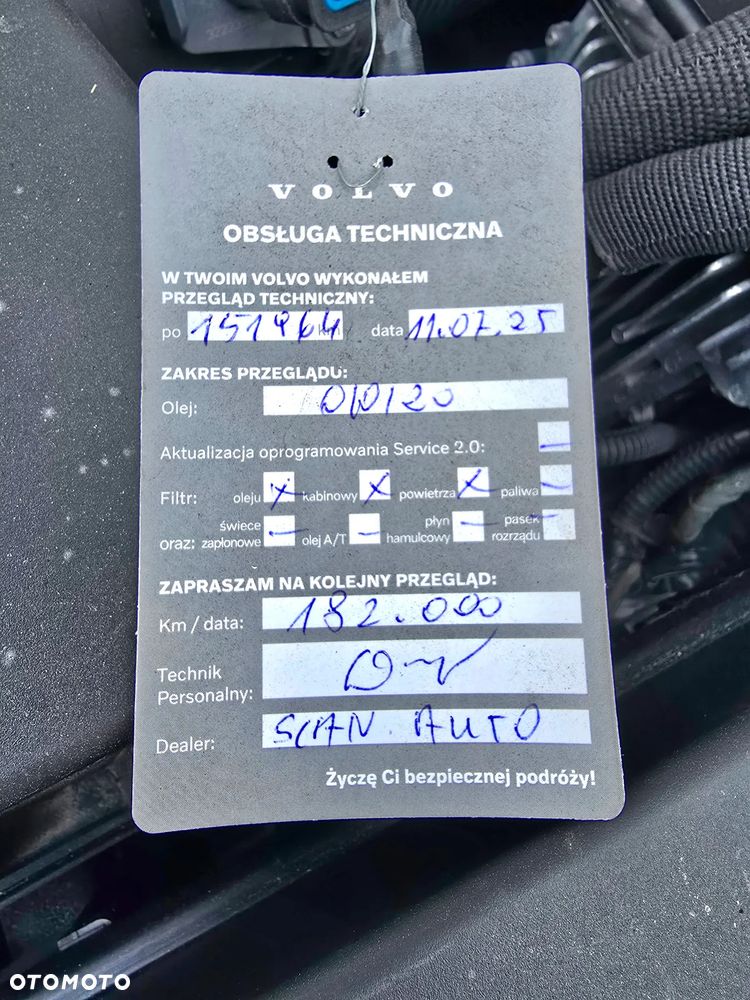 VOLVO
OBSŁUGA TECHNICZNA
W TWOIM VOLVO WYKONAŁEM
PRZEGLĄD TECHNICZNY:
po 151964 km data 11.07.25
ZAKRES PRZEGLĄDU:
Olej: 0W20
Aktualizacja oprogramowania Service 2.0: –
Filtr: oleju X kabinowy X powietrza X paliwa –
oraz: świece zapłonowe – olej A/T – płyn hamulcowy – pasek rozrządu –
ZAPRASZAM NA KOLEJNY PRZEGLĄD:
Km / data: 182.000
Technik
Personalny:
Dealer: SCAN AUTO
Życzę Ci bezpiecznej podróży!
OTOMOTO